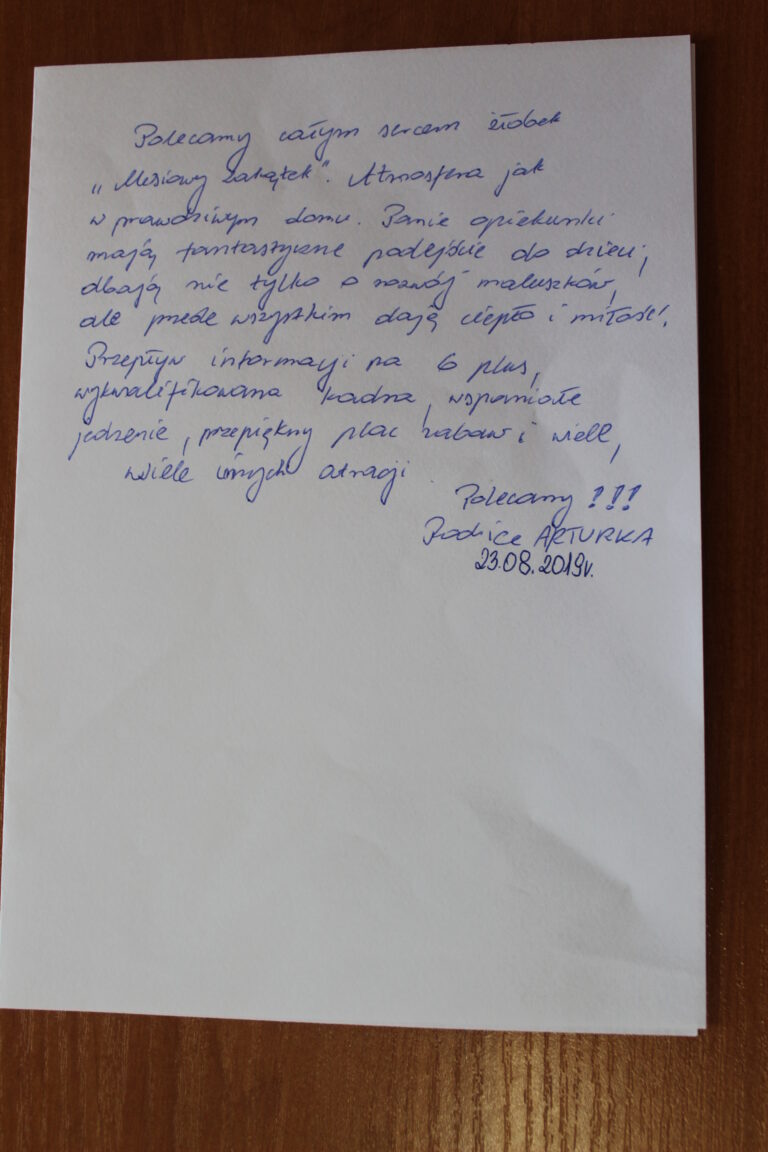 Polecamy całym sercem żłobek
„Misiowy Zakątek". Atmosfera jak
w prawdziwym domu. Panie opiekunki
mają fantastyczne podejście do dzieci,
dbają nie tylko o rozwój maluszków,
ale przede wszystkim dają ciepło i miłość!
Przepływ informacji na 6 plus,
wykwalifikowana kadra, wspaniałe
jedzenie, przepiękny plac zabaw i wiele,
wiele innych atracji
Polecamy !!!
Rodzice ARTURKA
23.08.2019r.